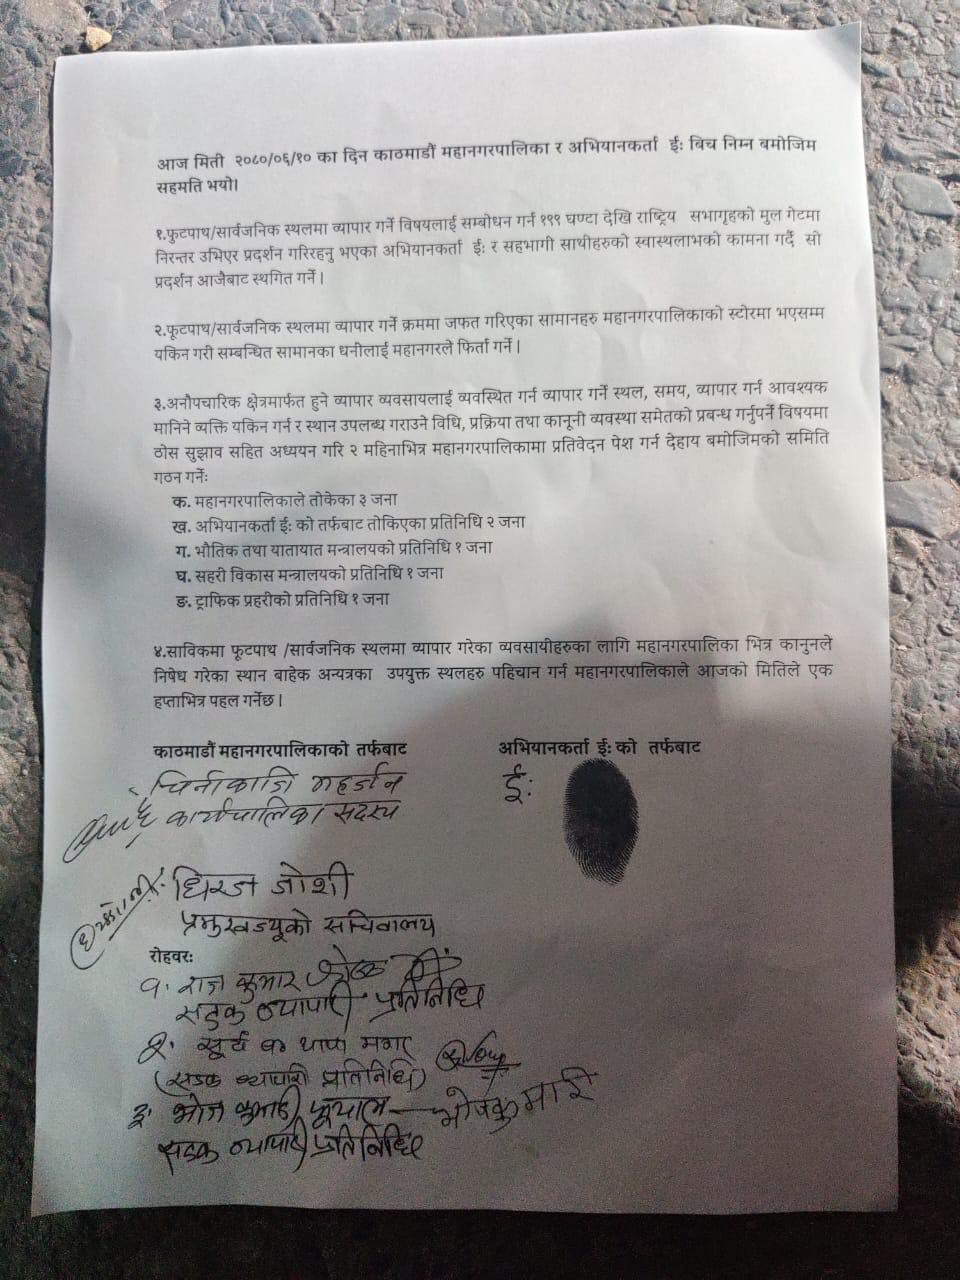 आज मिती २०८०/०६/१० का दिन काठमाडौं महानगरपालिका र अभियानकर्ता ईः बिच निम्न बमोजिम
सहमति भयो।
१.फुटपाथ/सार्वजनिक स्थलमा व्यापार गर्ने विषयलाई सम्बोधन गर्न १९९ घण्टा देखि राष्ट्रिय सभागृहको मुल गेटमा
निरन्तर उभिएर प्रदर्शन गरिरहनु भएका अभियानकर्ता ईः र सहभागी साथीहरुको स्वास्थलाभको कामना गर्दै सो
प्रदर्शन आजैबाट स्थगित गर्ने।
२.फूटपाथ/सार्वजनिक स्थलमा व्यापार गर्ने क्रममा जफत गरिएका सामानहरु महानगरपालिकाको स्टोरमा भएसम्म
यकिन गरी सम्बन्धित सामानका धनीलाई महानगरले फिर्ता गर्ने।
३.अनौपचारिक क्षेत्रमार्फत हुने व्यापार व्यवसायलाई व्यवस्थित गर्न व्यापार गर्ने स्थल, समय, व्यापार गर्न आवश्यक
मानिने व्यक्ति यकिन गर्न र स्थान उपलब्ध गराउने विधि, प्रक्रिया तथा कानूनी व्यवस्था समेतको प्रबन्ध गर्नुपर्ने विषयमा
ठोस सुझाव सहित अध्ययन गरि २ महिनाभित्र महानगरपालिकामा प्रतिवेदन पेश गर्न देहाय बमोजिमको समिति
गठन गर्नेः
क. महानगरपालिकाले तोकेका ३ जना
ख. अभियानकर्ता ईः को तर्फबाट तोकिएका प्रतिनिधि २ जना
ग. भौतिक तथा यातायात मन्त्रालयको प्रतिनिधि १ जना
घ. सहरी विकास मन्त्रालयको प्रतिनिधि १ जना
ङ. ट्राफिक प्रहरीको प्रतिनिधि १ जना
४.साविकमा फूटपाथ /सार्वजनिक स्थलमा व्यापार गरेका व्यवसायीहरुका लागि महानगरपालिका भित्र कानुनले
निषेध गरेका स्थान बाहेक अन्यत्रका उपयुक्त स्थलहरु पहिचान गर्न महानगरपालिकाले आजको मितिले एक
हप्ताभित्र पहल गर्नेछ।
काठमाडौं महानगरपालिकाको तर्फबाट
चिनीकाजि महर्जन
कार्यपालिका सदस्य
धिरज जोशी
प्रमुखज्यूको सचिवालय
अभियानकर्ता ईः को तर्फबाट
ईः
रोहवरः
१. राज कुमार
सडक व्यापारी प्रतिनिधि
२. सूर्य थापा मगर
(सडक व्यापारी प्रतिनिधि)
३. भोज कुमारी फूयाल — भोजकुमारी
सडक व्यापारी प्रतिनिधि